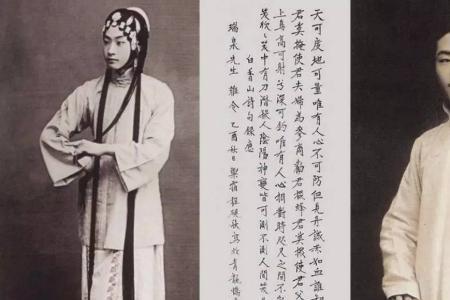 天可度地可量唯有人心不可防但見丹誠赤如血誰
君莫掩使君夫婦為參商勸君掇蜂君莫掇使君父
上鳥高可射兮深可釣唯有人心相對時咫尺之間不
笑欣〻笑中有刀潛殺人陰陽神變皆可測不測人間笑
白香山詩句錄應
瑞泉先生 雅令 乙酉 程硯秋寫於青龍橋